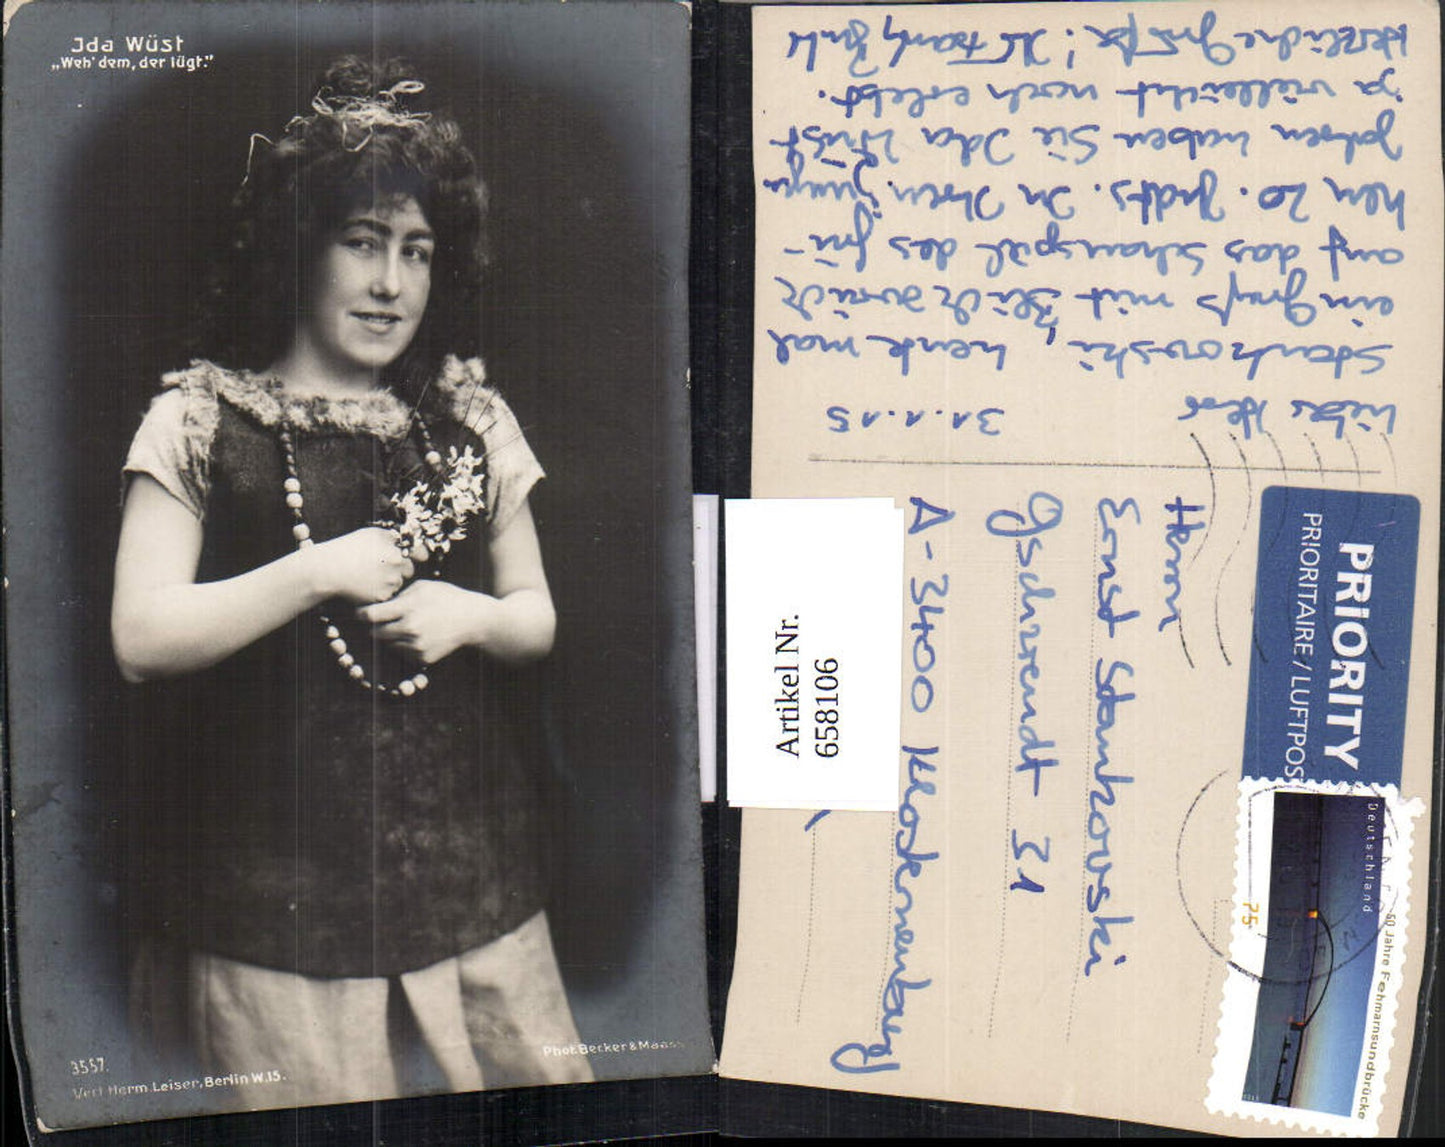 Ida Wüst
„Weh' dem, der lügt."
3557.
Verl. Herm. Leiser, Berlin W.15.
Phot. Becker & Maass
Artikel Nr.
658106
31.1.15
Lieber Herr
Stankovski, heute mal
ein Gruß mit Blick zurück
auf das Schauspiel des frü-
hen 20. Jhdts. In Ihren jungen
Jahren haben Sie Ida Wüst
ja vielleicht noch erlebt.
Herzliche Grüße! Ihr
Herrn
Ernst Stankovski
Gschwendt 31
A-3400 Klosterneuburg
PRIORITY
PRIORITAIRE / LUFTPOST
Deutschland
75
50 Jahre Fehmarnsundbrücke